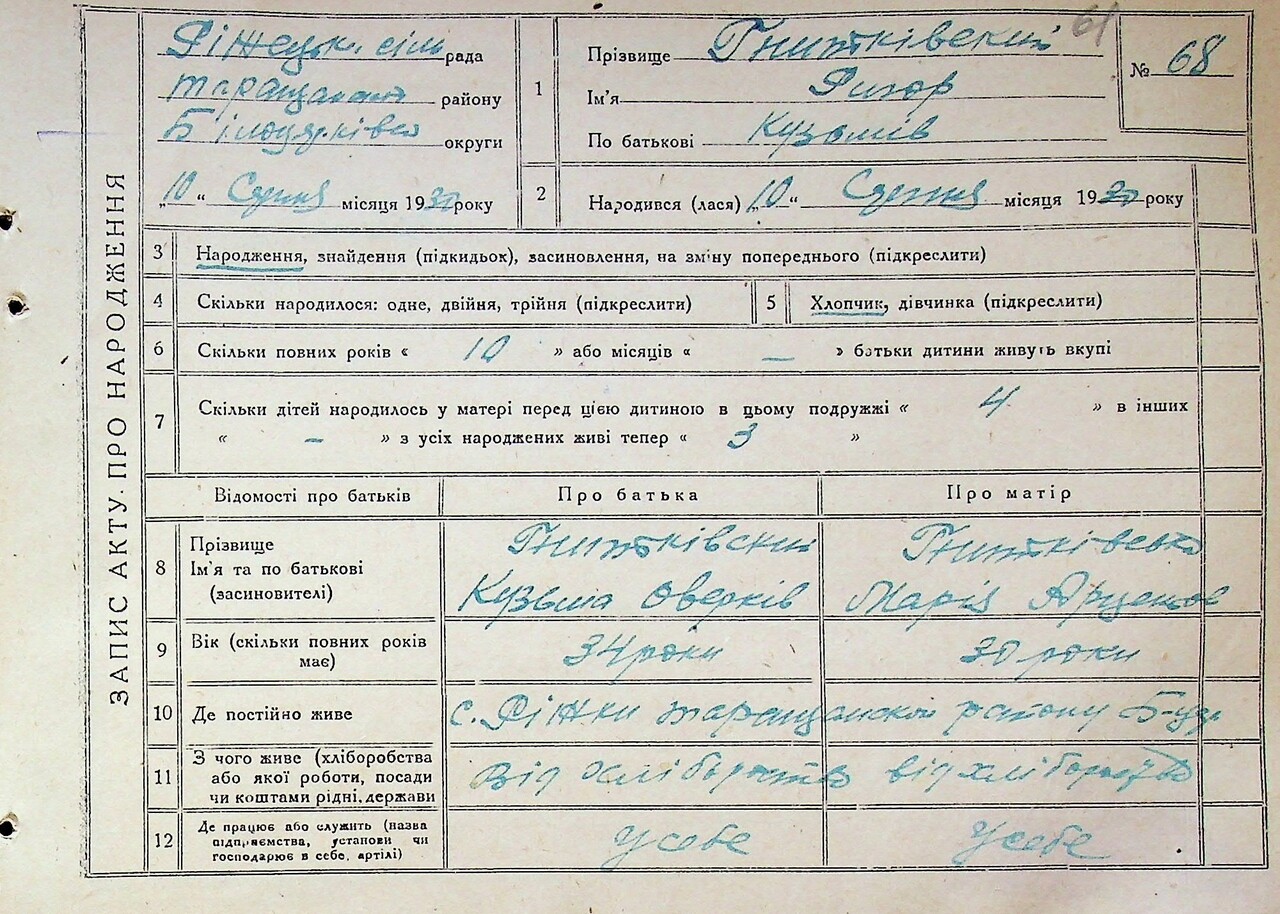 ЗАПИС АКТУ ПРО НАРОДЖЕННЯ
Ріжецьк. сіль рада
Таращанськ району
Білоцерківсь округи
„10“ Серпня місяця 1930 року
1
Прізвище Гнитківский
Ім'я Григор
По батькові Кузьмів
61
№ 68
2
Народився (лася) „10“ Серпня місяця 1930 року
3 Народження, знайдення (підкидьок), засиновлення, на зміну попереднього (підкреслити)
4 Скільки народилося: одне, двійня, трійня (підкреслити)
5 Хлопчик, дівчинка (підкреслити)
6 Скільки повних років « 10 » або місяців « — » батьки дитини живуть вкупі
7 Скільки дітей народилось у матері перед цією дитиною в цьому подружжі « 4 » в інших
« – » з усіх народжених живі тепер « 3 »
Відомості про батьків Про батька Про матір
8 Прізвище
Ім'я та по батькові
(засиновителі)
Гнитківский
Кузьма Оверків
Гнитківська
Марія
9 Вік (скільки повних років
має)
34 роки 30 роки
10 Де постійно живе с. Ріжки Таращанскої району Б-Цер
11 З чого живе (хліборобства
або якої роботи, посади
чи коштами рідні, держави
Від хліборобств від хліборобств
12 Де працює або служить (назва
підприємства, установи чи
господарює в себе, артілі)
У себе У себе